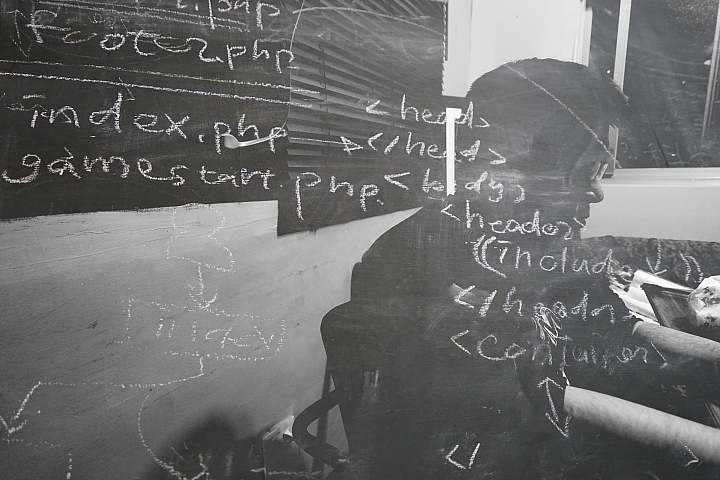 footer.php
index.php
gamestart.php
<head>
</head>
<body>
<header>
(include )
</header>
<container>
index
</